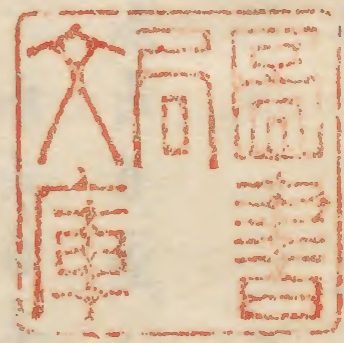 圖書
局
文庫